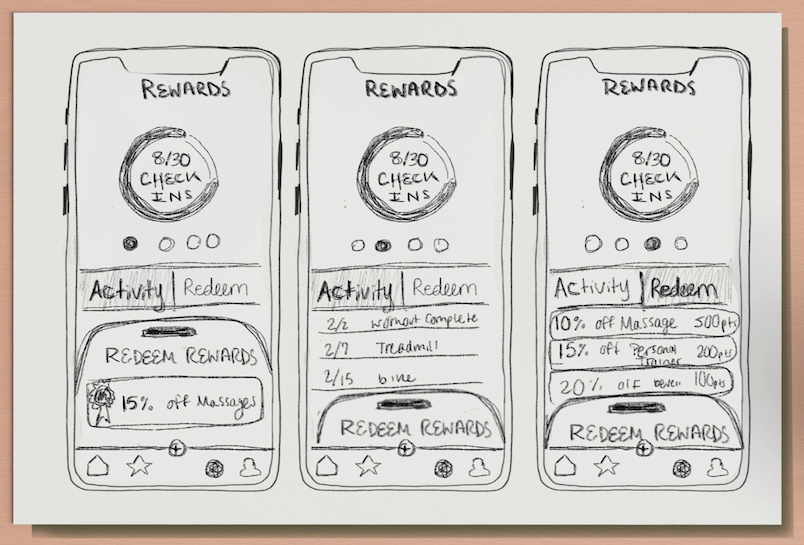 REWARDS
8/30
CHECK
INS
Activity | Redeem
REDEEM REWARDS
15% off Massages
REWARDS
8/30
CHECK
INS
Activity | Redeem
2/2 workout Complete
2/7 Treadmill
2/15 bike
REDEEM REWARDS
REWARDS
8/30
CHECK
INS
Activity | Redeem
10% off Massage 500pts
15% off Personal Trainer 200pts
20% off 100pts
REDEEM REWARDS